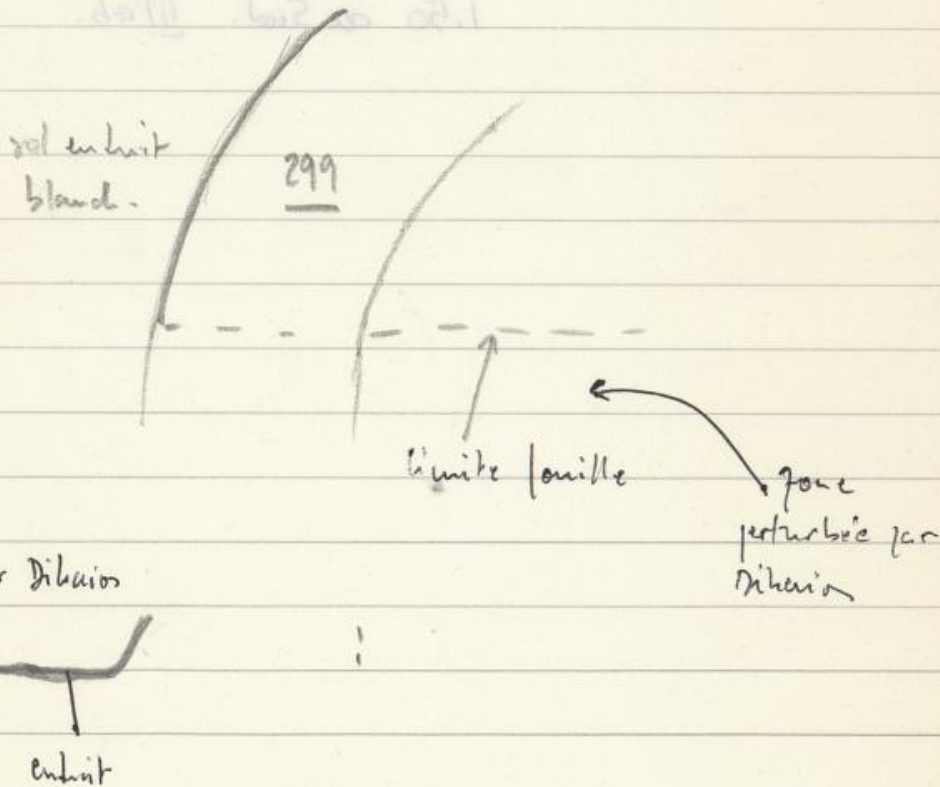 sol enduit
blanc.
299
limite fouille
zone
perturbée par
Dikaios
Dikaios
enduit